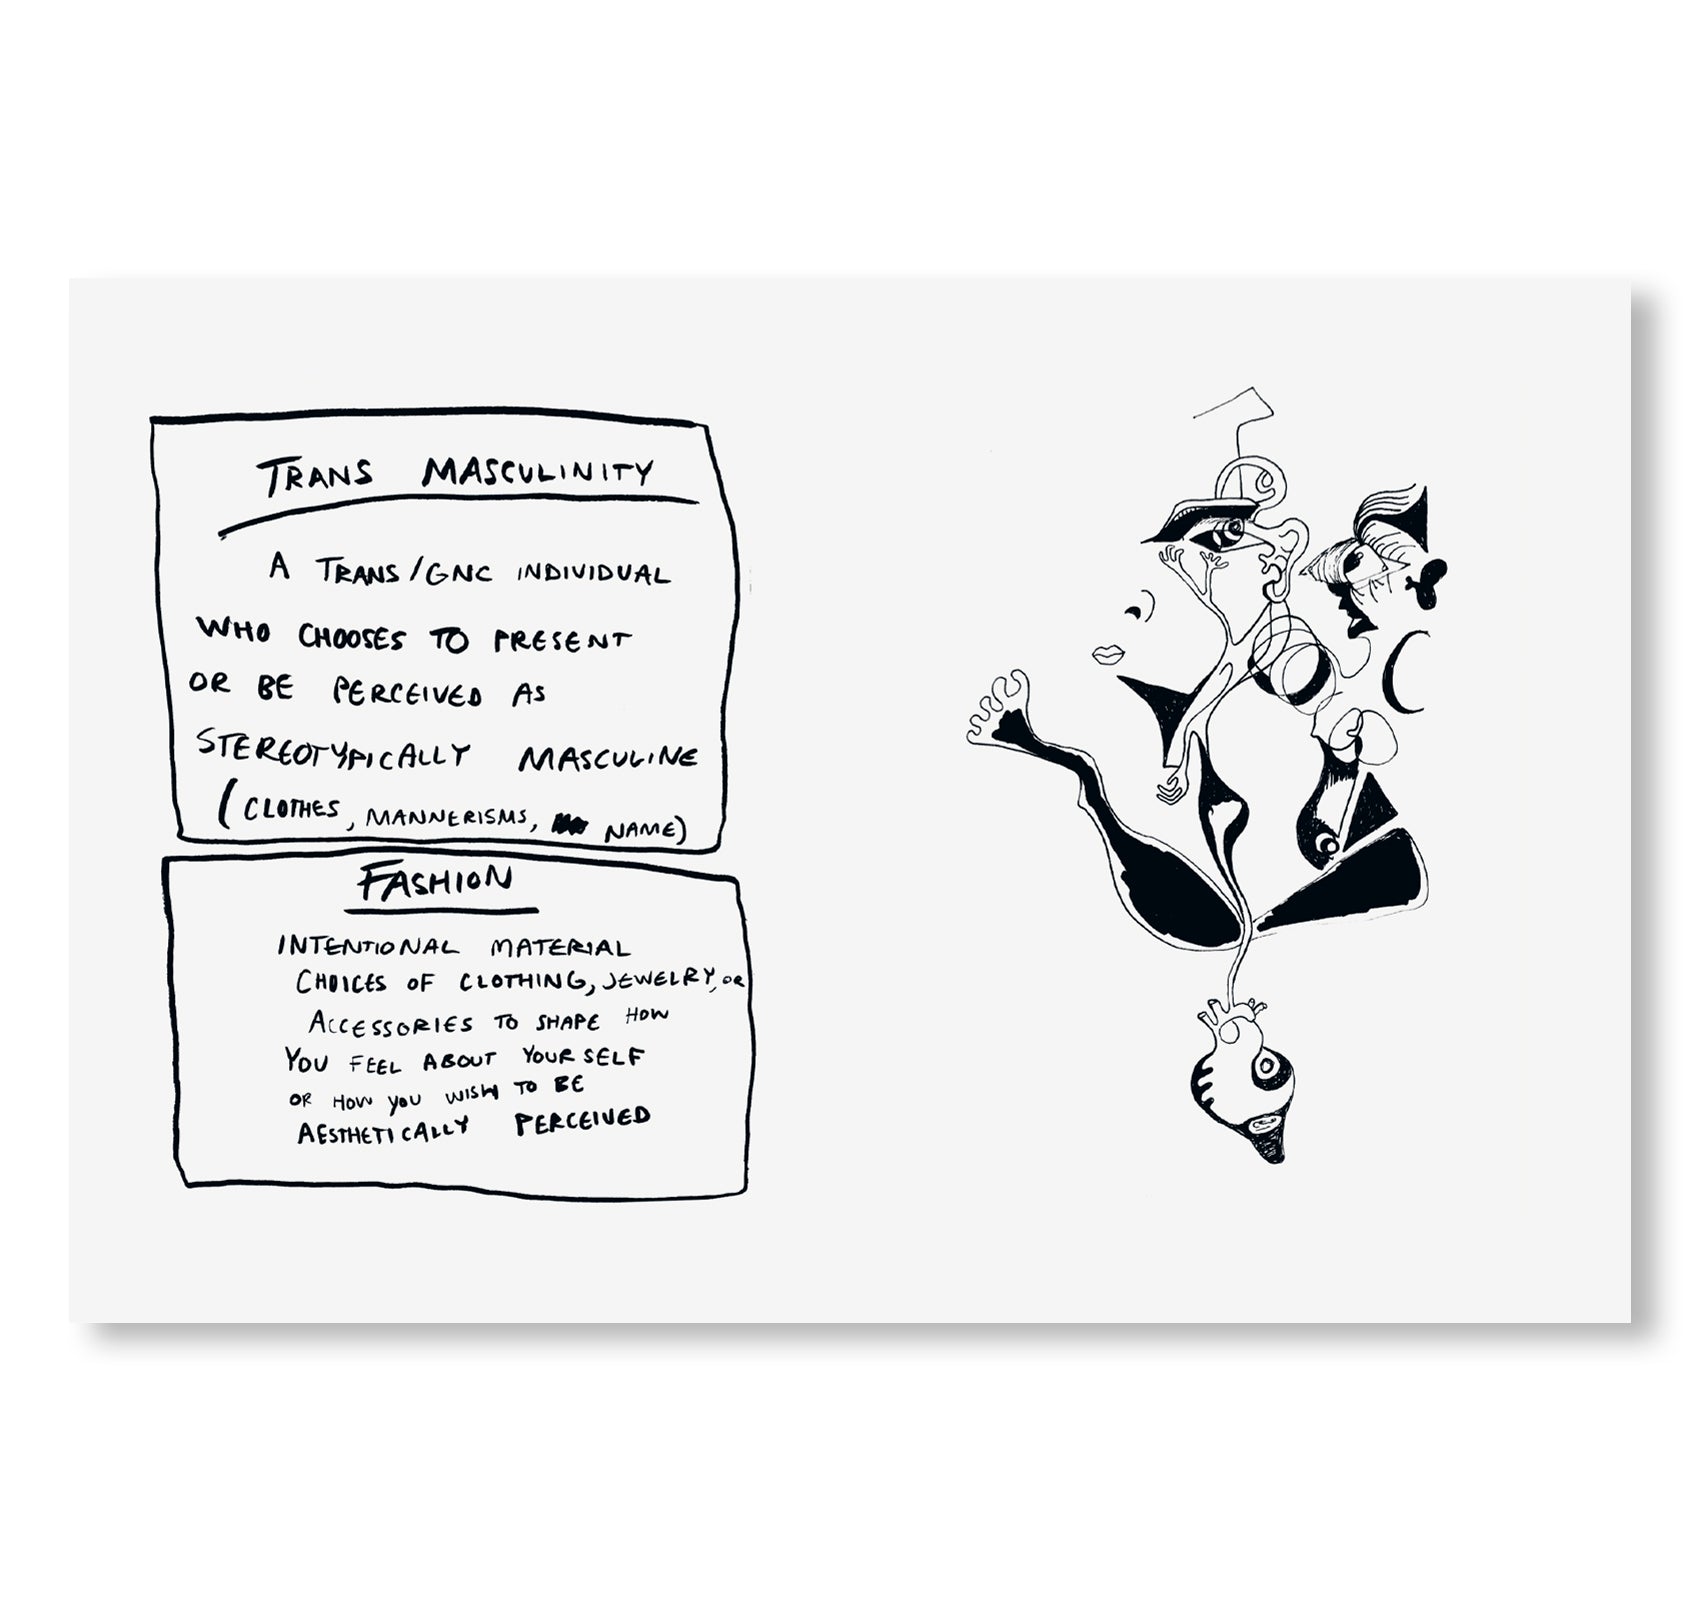 TRANS MASCULINITY
A TRANS/GNC INDIVIDUAL
WHO CHOOSES TO PRESENT
OR BE PERCEIVED AS
STEREOTYPICALLY MASCULINE
(CLOTHES, MANNERISMS, NAME)
FASHION
INTENTIONAL MATERIAL
CHOICES OF CLOTHING, JEWELRY, OR
ACCESSORIES TO SHAPE HOW
YOU FEEL ABOUT YOURSELF
OR HOW YOU WISH TO BE
AESTHETICALLY PERCEIVED